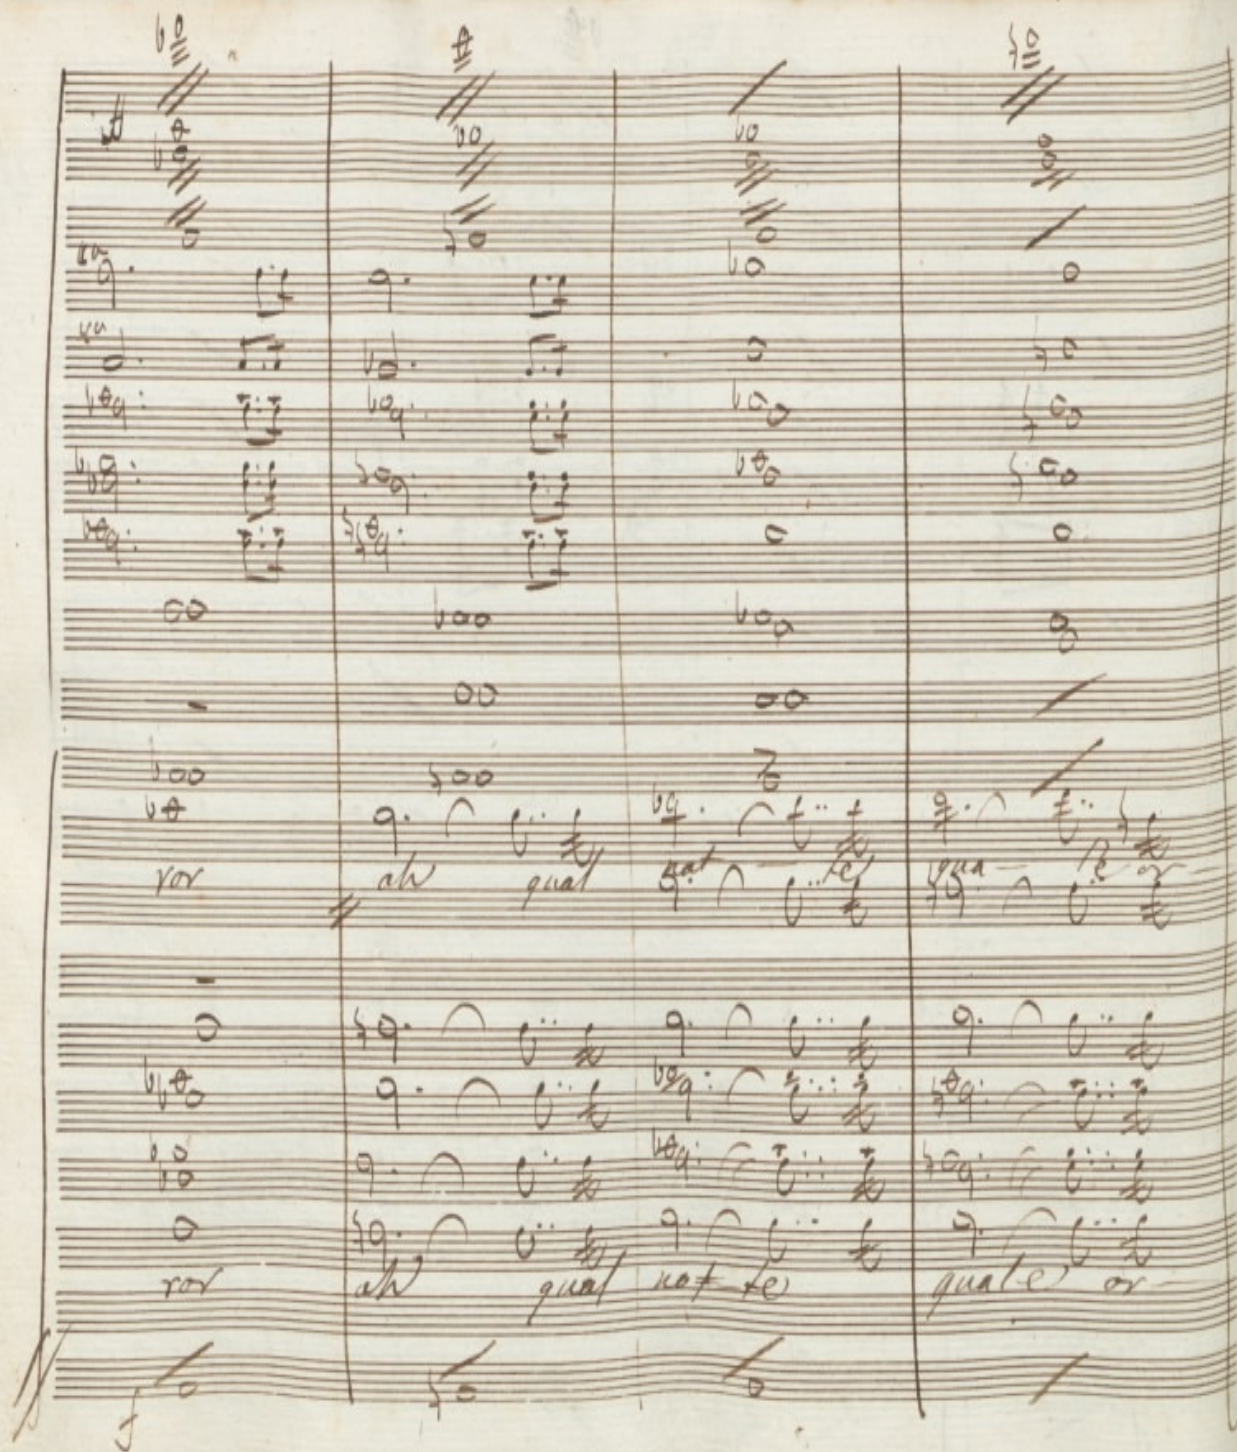 ff
ror ah qual not - te qua - le or
ror ah qual not te quale or
f